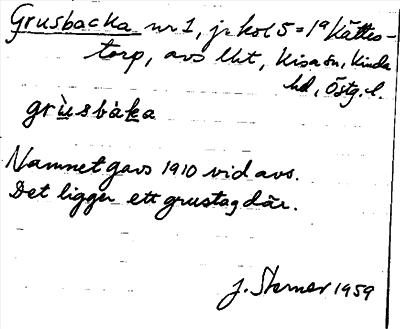 Grusbacka nr 1, jr kol 5 = 1ª Kättes-
torp, avs lht, Kisa sn, Kinda
hd, Östg. l.
grùsbàka
Namnet gavs 1910 vid avs.
Det ligger ett grustag där.
J. Sterner 1959